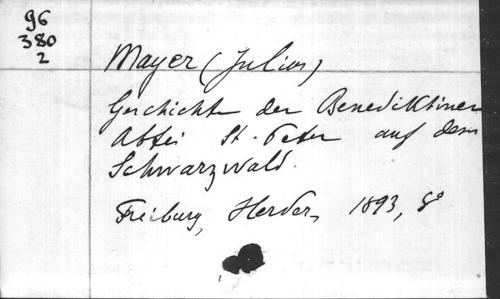 96
380
2
Mayer (Julius)
Geschichte der Benediktiner
Abtei St. Peter auf dem
Schwarzwald.
Freiburg, Herder, 1893, 8°